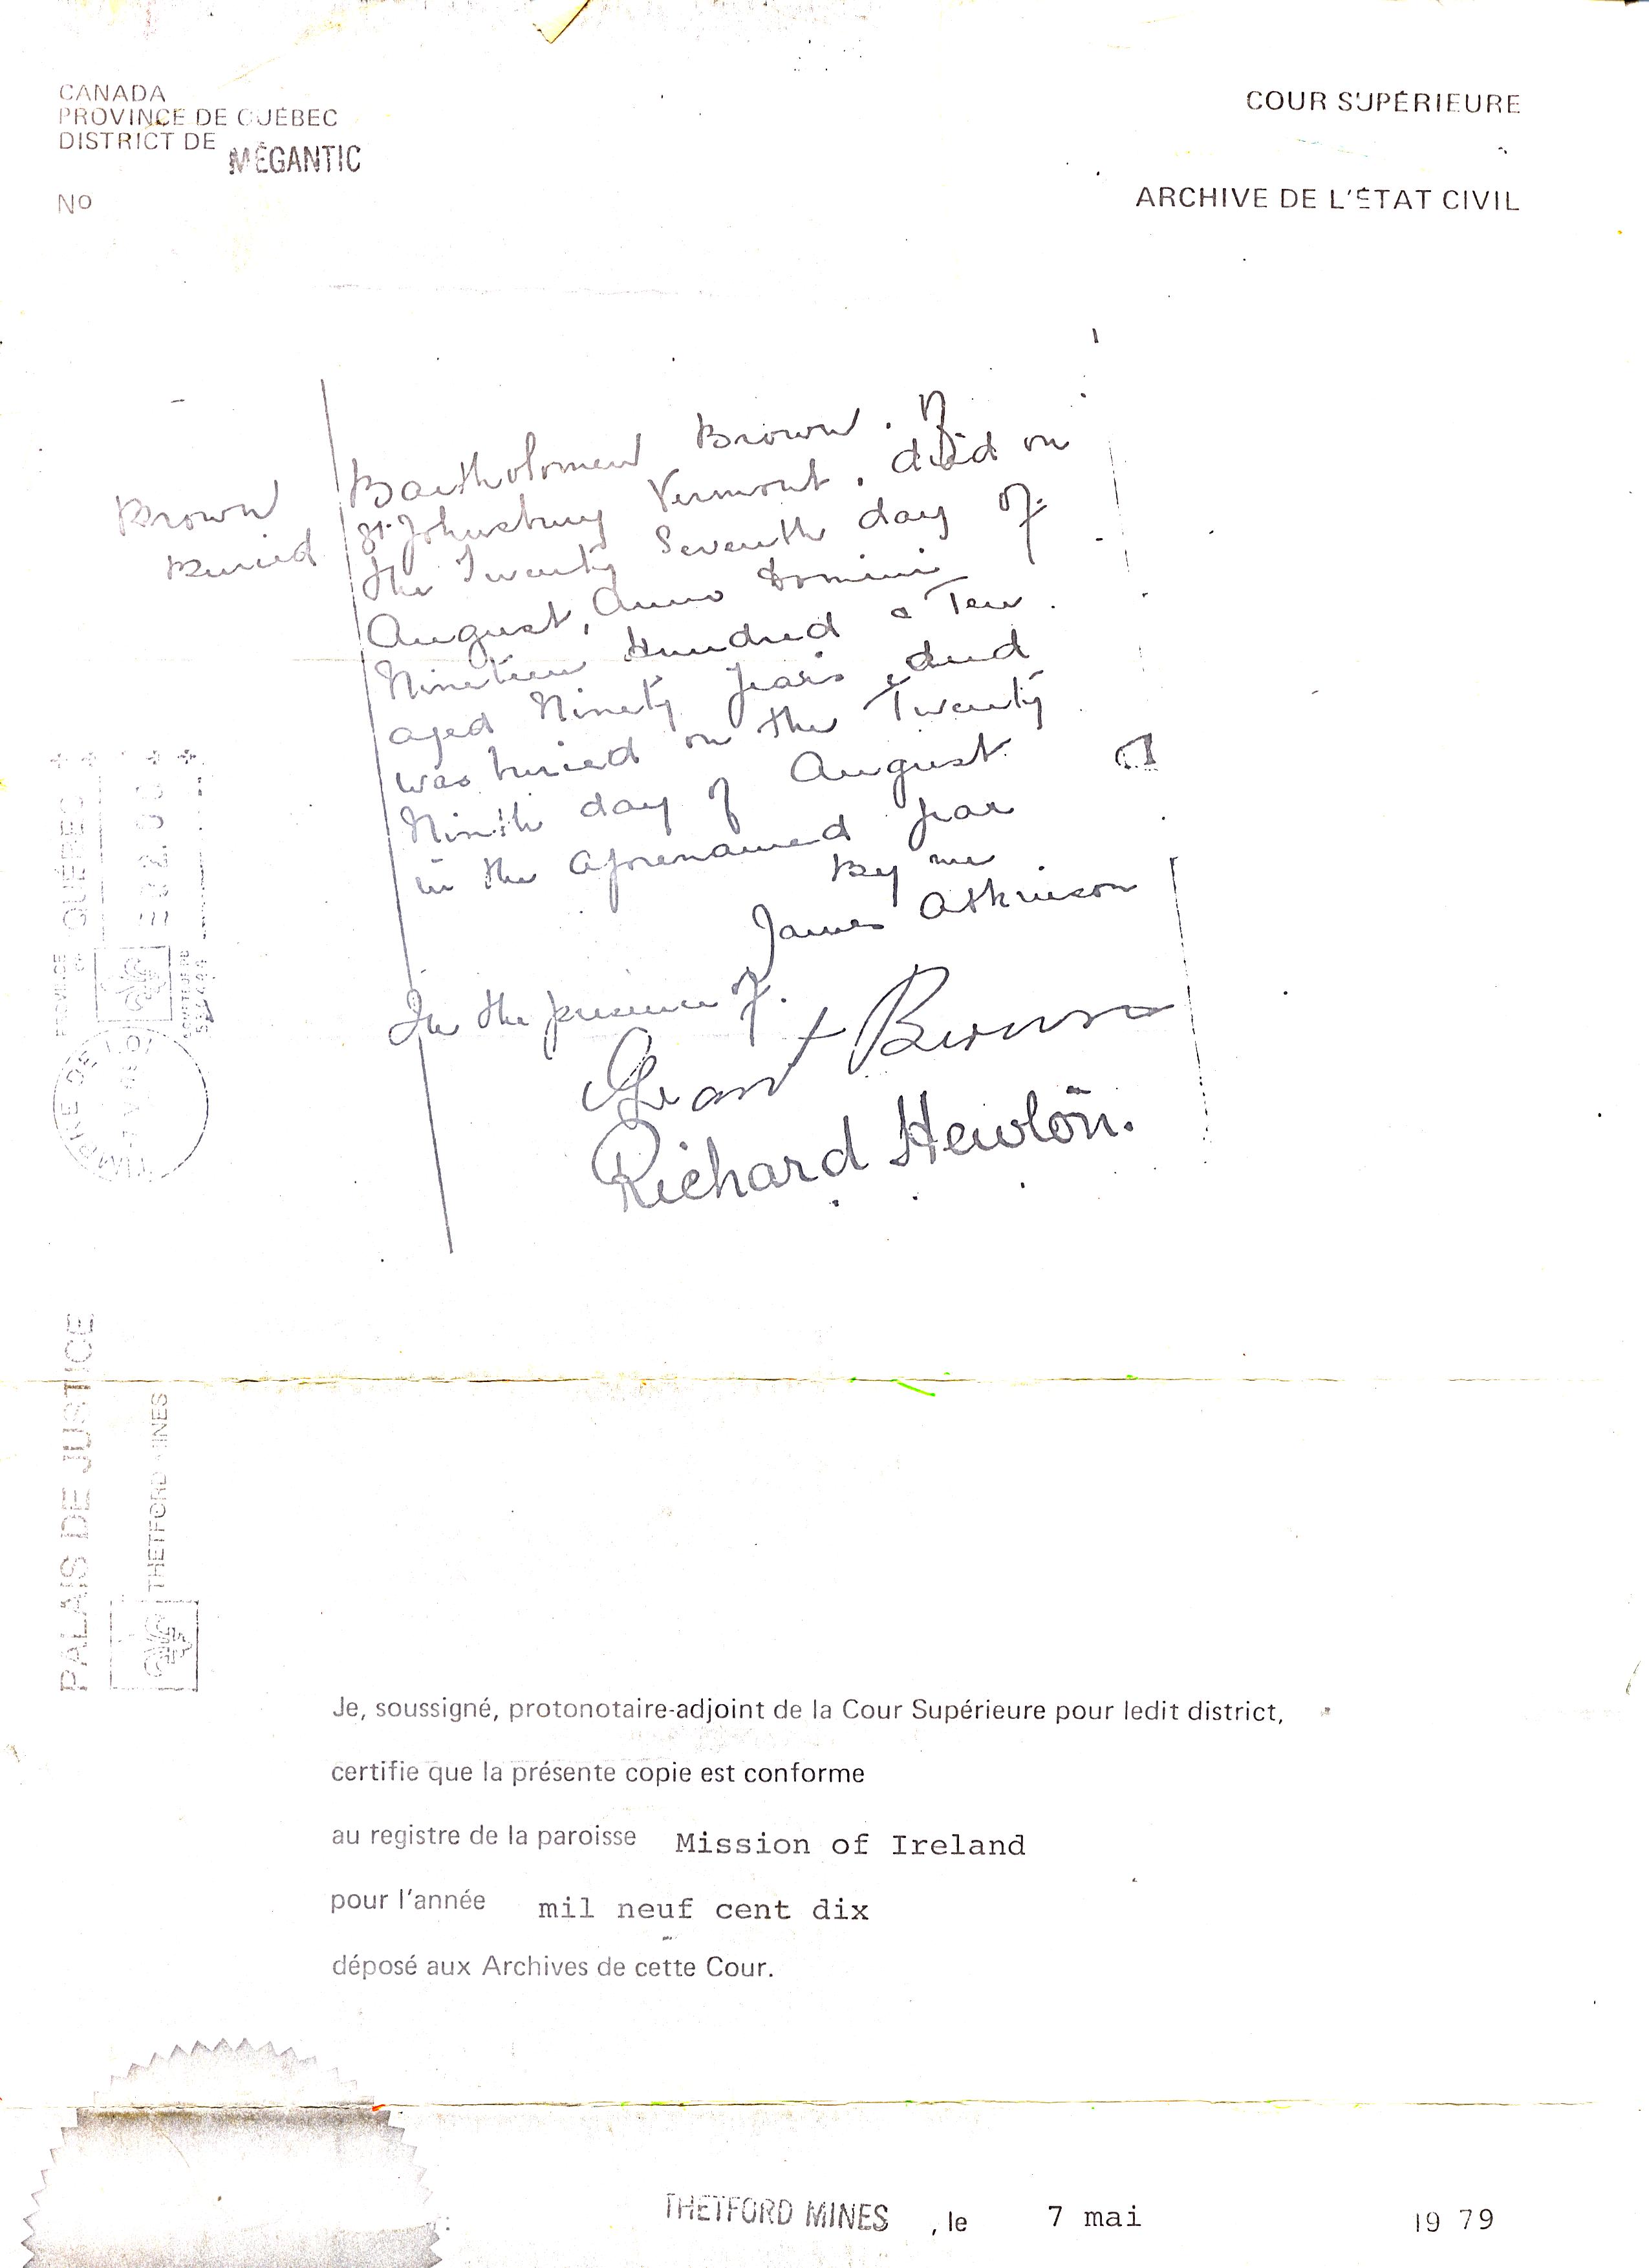 CANADA
PROVINCE DE QUÉBEC
DISTRICT DE MÉGANTIC
No
COUR SUPÉRIEURE
ARCHIVE DE L'ÉTAT CIVIL
Brown
Buried
Bartholomew Brown. of
St. Johnsbury Vermont. died on
the Twenty Seventh day of
August, Anno Domini
Nineteen Hundred & Ten
aged Ninety years and
was buried on the Twenty
Ninth day of August
in the aforenamed year
By me
James Atkinson
In the presence of.
Grant Brown
Richard Hewton.
PROVINCE
QUÉBEC
PALAIS DE JUSTICE
THETFORD MINES
Je, soussigné, protonotaire-adjoint de la Cour Supérieure pour ledit district,
certifie que la présente copie est conforme
au registre de la paroisse Mission of Ireland
pour l'année mil neuf cent dix
déposé aux Archives de cette Cour.
THETFORD MINES , le 7 mai 19 79